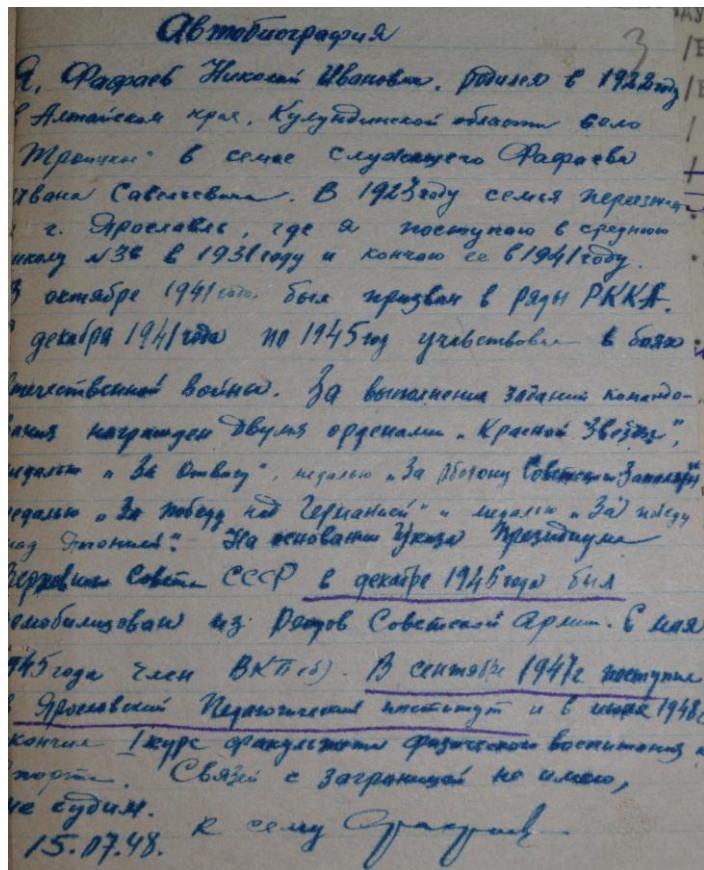 Автобиография
3
Я, Фафаев Николай Иванович, родился в 1922 году
в Алтайском крае, Кулундинской области село
"Троицкое" в семье служащего Фафаева
Ивана Савельевича. В 1923 году семья переезжает
в г. Ярославль, где я поступаю в среднюю
школу №36 в 1931 году и кончаю ее в 1941 году.
В октябре 1941 года был призван в ряды РККА.
С декабря 1941 года по 1945 год участвовал в боях
Отечественной войны. За выполнения заданий командо-
вания награжден двумя орденами „Красной Звезды",
медалью „За Отвагу", медалью „За оборону Советского Заполярья",
медалью „За победу над Германией" и медалью „За победу
над Японией". На основании Указа Президиума
Верховного Совета СССР в декабре 1946 года был
демобилизован из рядов Советской Армии. С мая
1945 года член ВКП(б). В сентябре 1947 г. поступил
в Ярославский Педагогический институт и в июне 1948 г.
окончил I курс факультета физического воспитания и
спорта. Связей с заграницей не имею,
не судим.
15.07.48. К сему